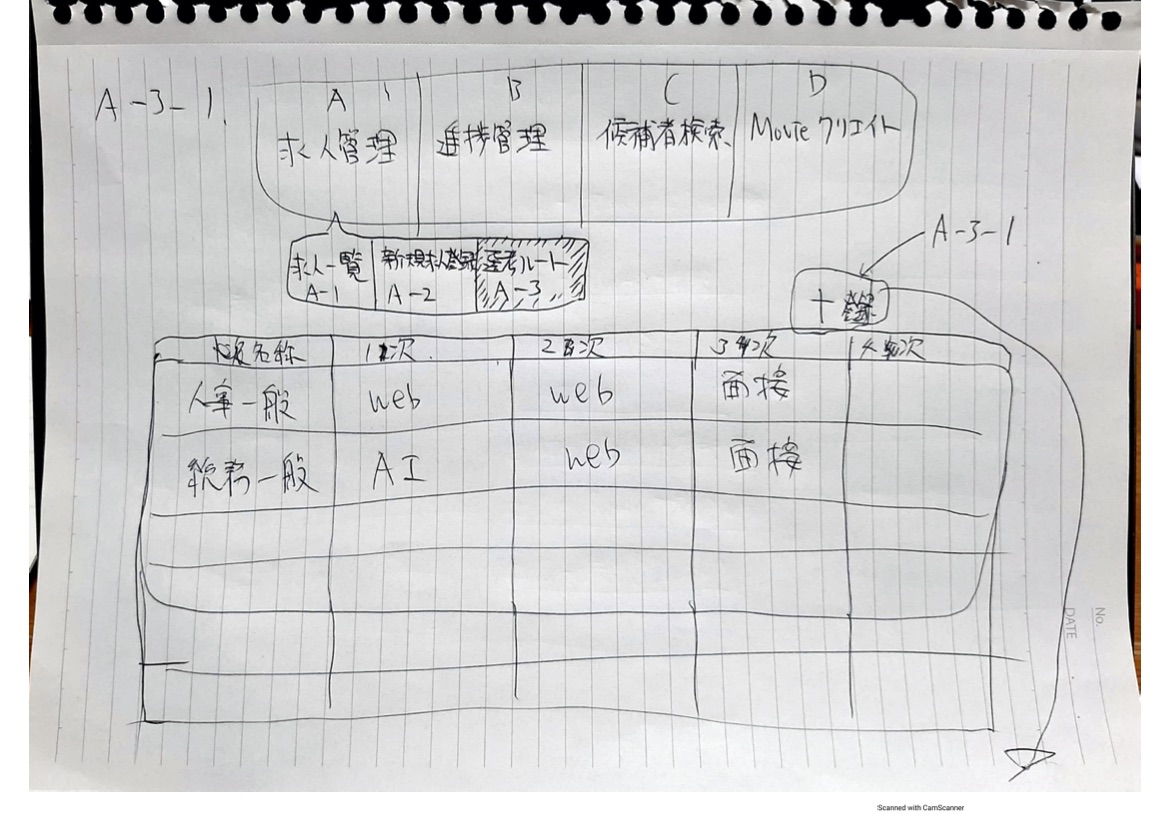 A-3-1.
A
B
C
D
求人管理
進捗管理
候補者検索
Movieクリエイト
A-3-1
求人一覧
A-1
新規求人登録
A-2
選考ルート
A-3
+ 登録
名称
1次
2次
3次
4次
人事一般
web
web
面接
総務一般
AI
web
面接
No.
DATE
Scanned with CamScanner